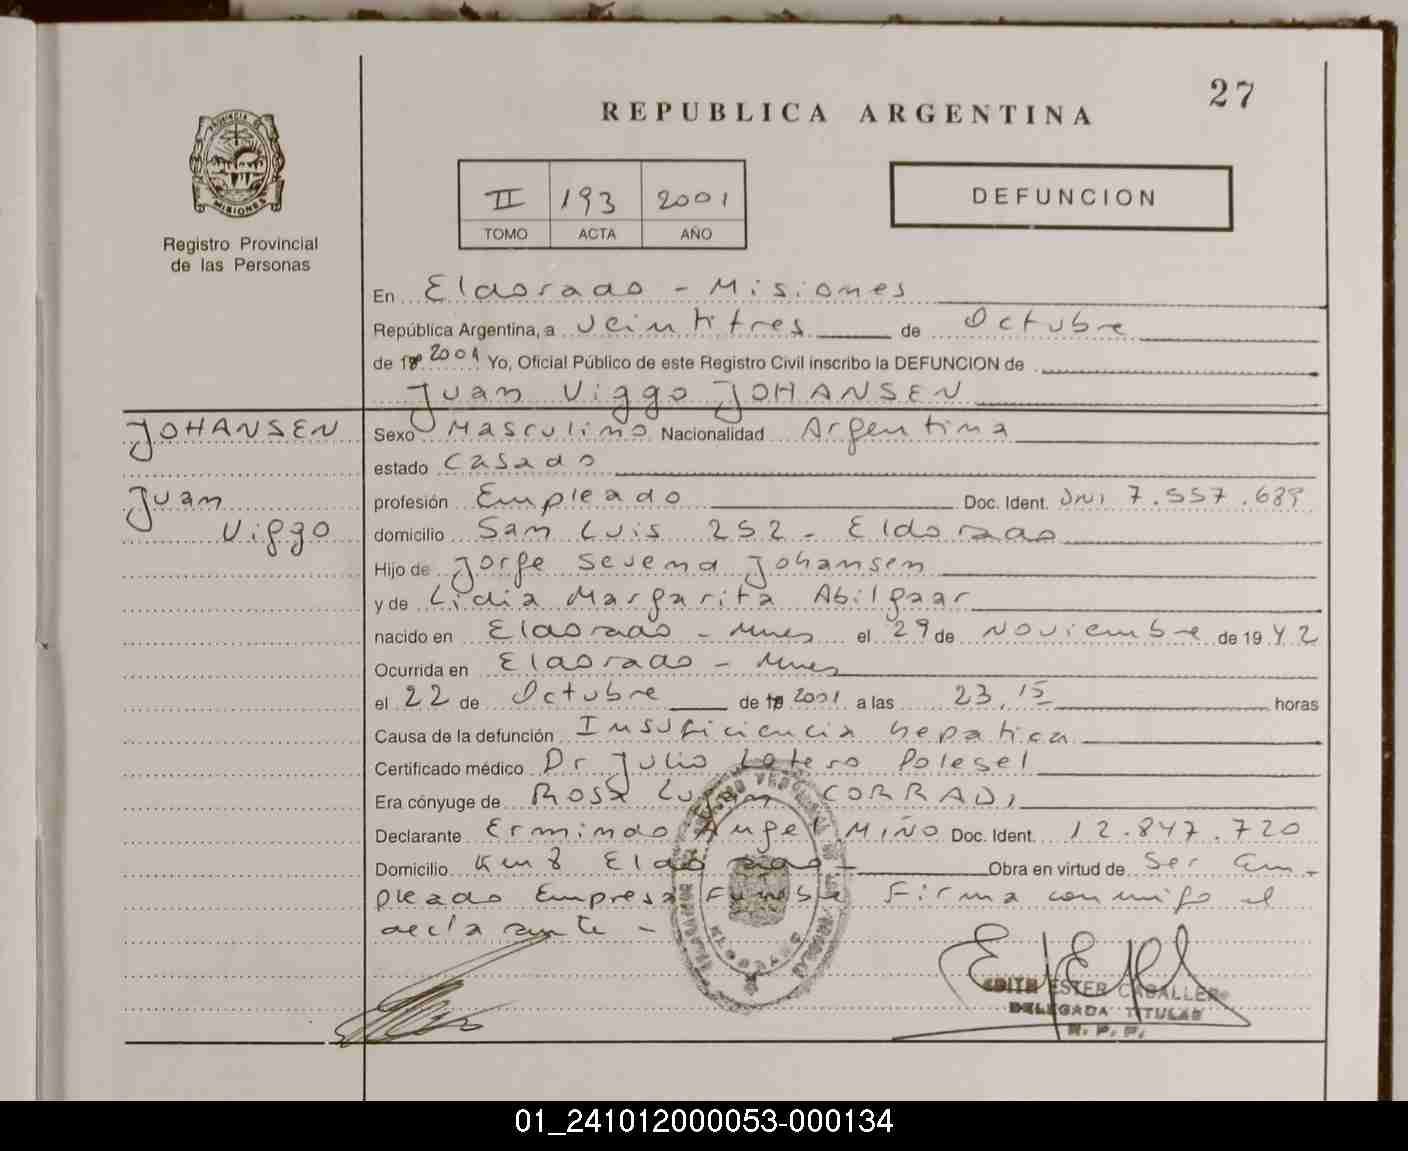 27
REPUBLICA ARGENTINA
PROVINCIA DE
MISIONES
Registro Provincial
de las Personas
II 193 2001
TOMO ACTA AÑO
DEFUNCION
En Eldorado - Misiones
República Argentina, a veintitres de Octubre
de 19 2001 Yo, Oficial Público de este Registro Civil inscribo la DEFUNCION de
Juan Viggo JOHANSEN
JOHANSEN
Juan
Viggo
Sexo Masculino Nacionalidad Argentina
estado Casado
profesión Empleado Doc. Ident. DNI 7.557.689
domicilio San Luis 252 - Eldorado
Hijo de Jorge Johansen
y de Lidia Margarita Abilgaar
nacido en Eldorado - Mnes el 29 de Noviembre de 1942
Ocurrida en Eldorado - Mnes
el 22 de Octubre de 19 2001 a las 23,15 horas
Causa de la defunción Insuficiencia hepatica
Certificado médico Dr Julio Polesel
Era cónyuge de Rosa Lujan CORRADI
Declarante Ermindo Angel MIÑO Doc. Ident. 12.847.720
Domicilio Km 8 Eldorado - Obra en virtud de Ser Em-
pleado Empresa Funebre Firma conmigo el
declarante -
ELDORADO
EDITH ESTER CABALLERO
DELEGADA TITULAR
R. P. P.
01_241012000053-000134